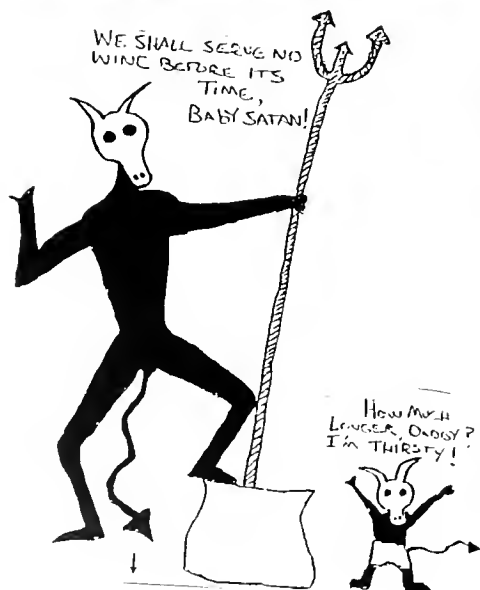 WE SHALL SERVE NO
WINE BEFORE ITS
TIME,
BABY SATAN!
HOW MUCH
LONGER, DADDY?
I'M THIRSTY!